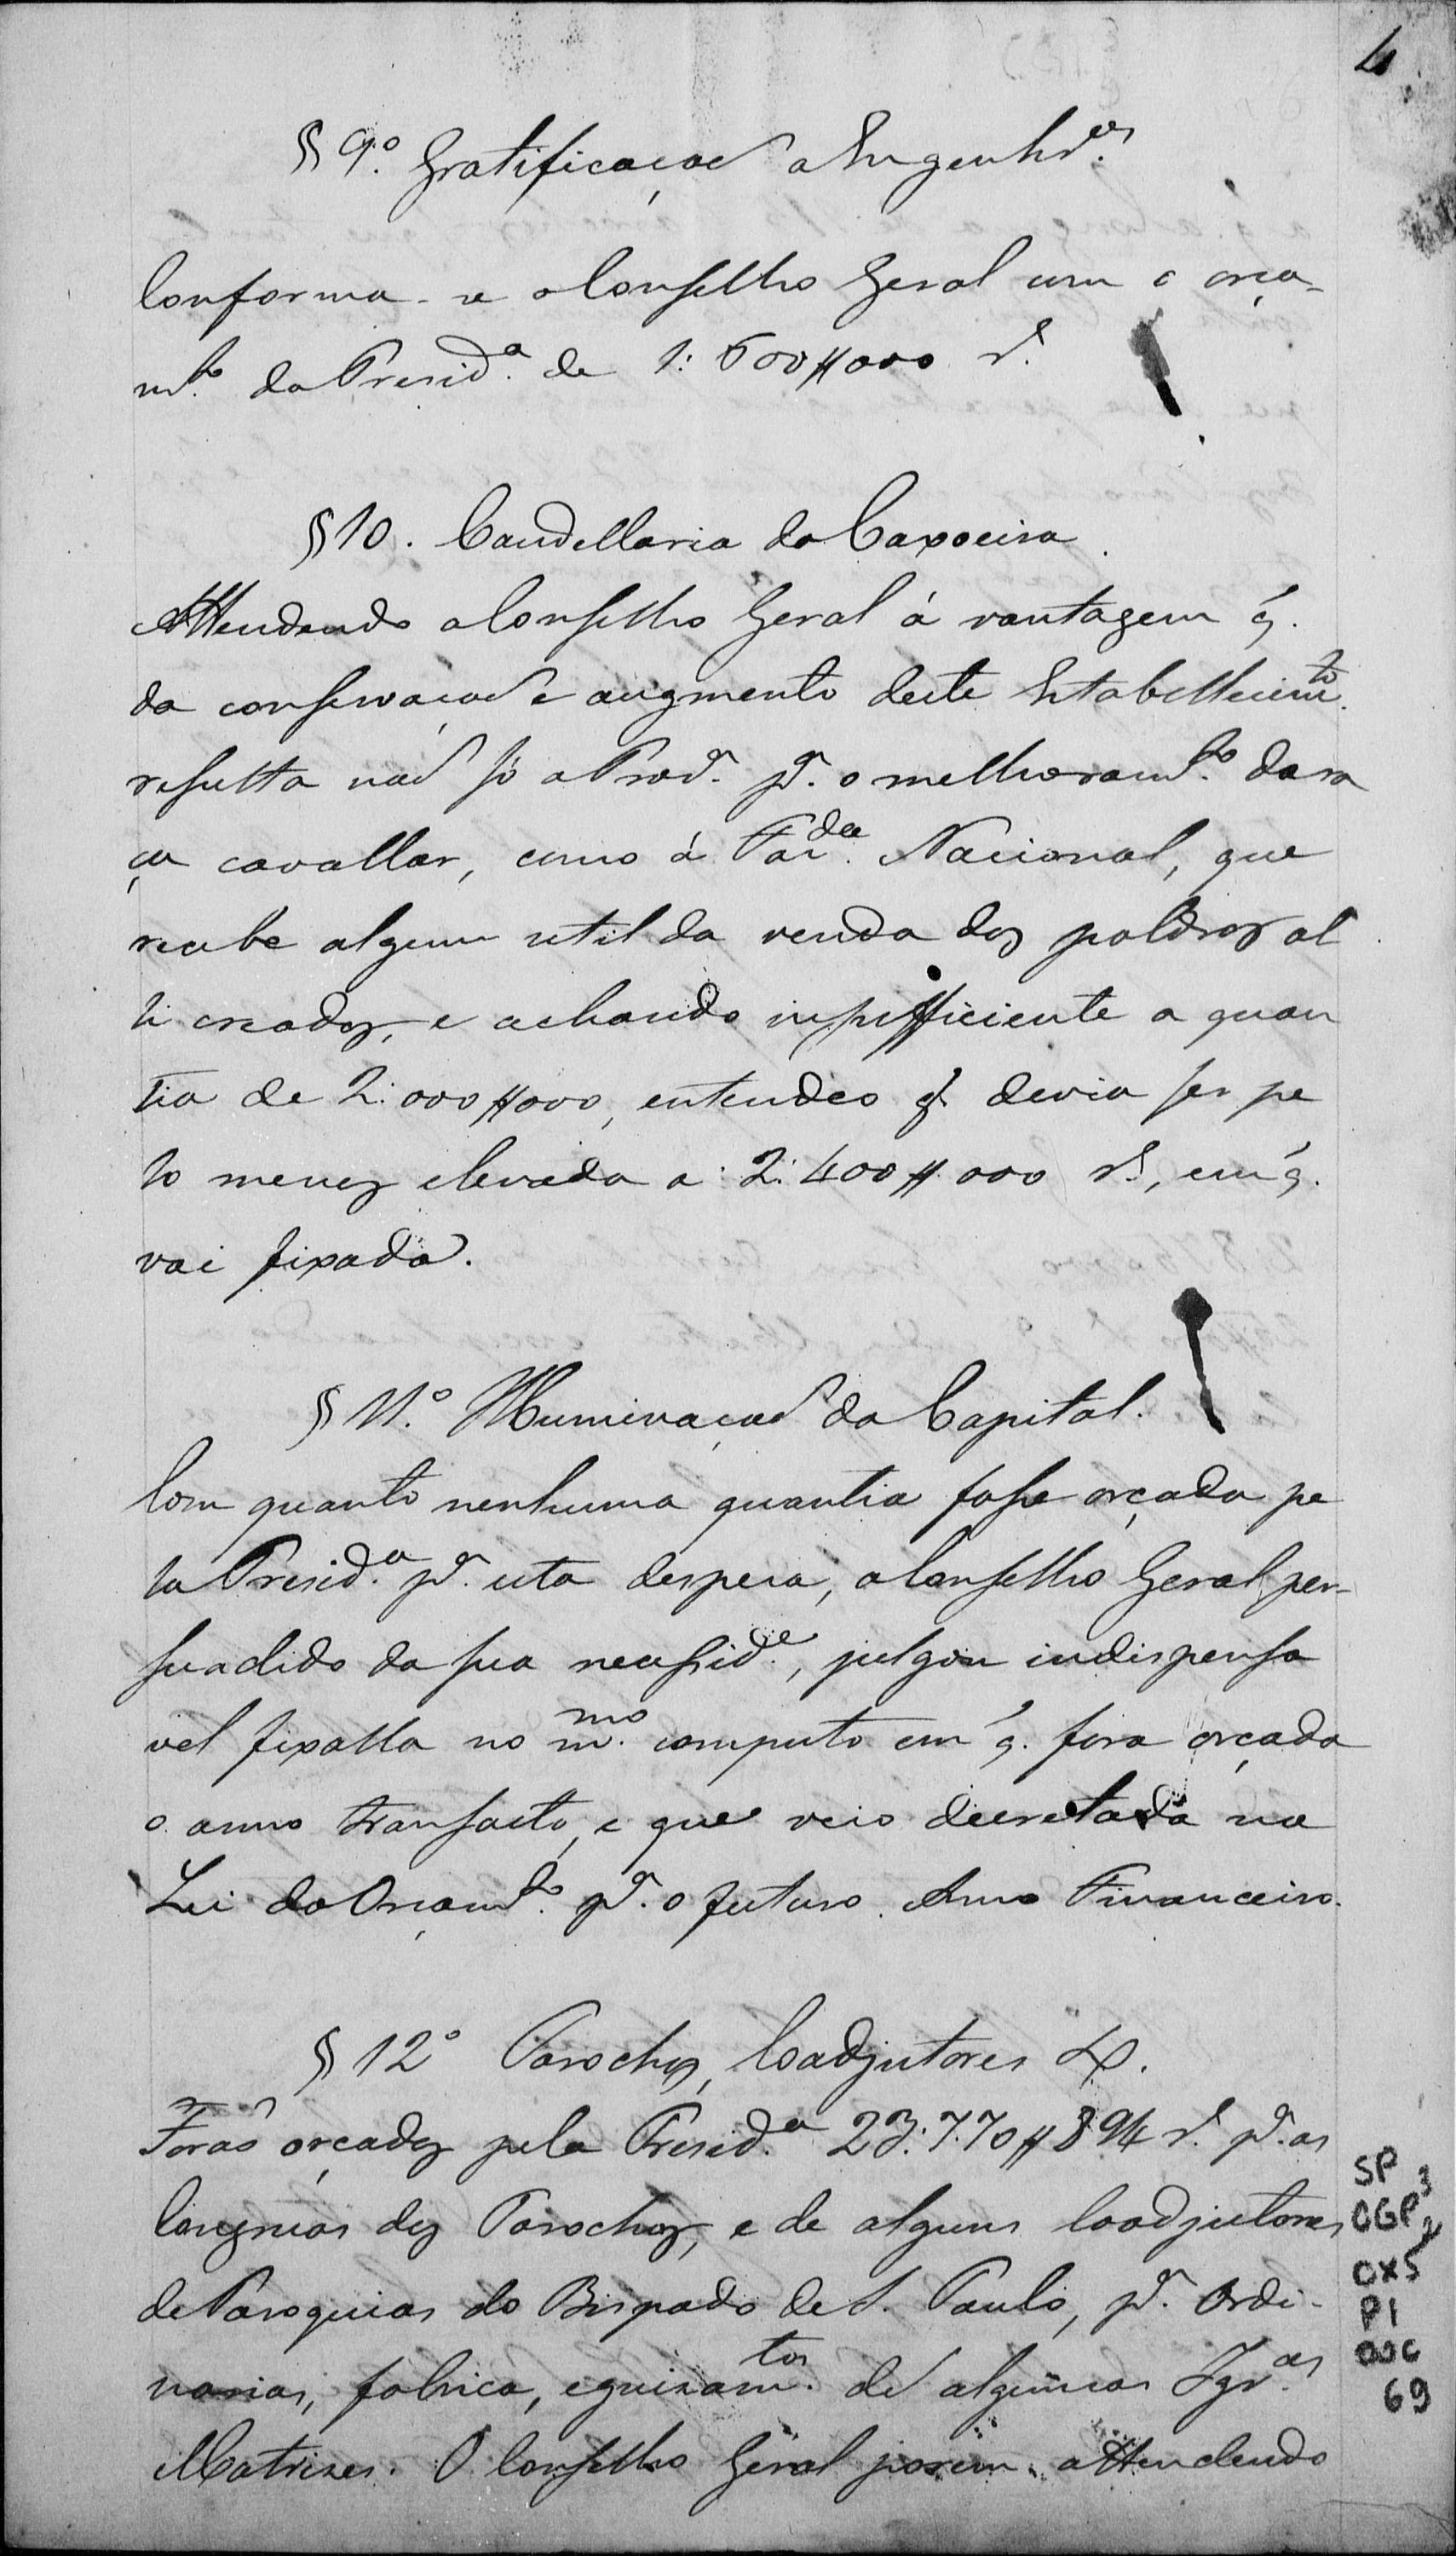 4
§ 9.º Gratificação a Engenhr.os
Conforma-se o Conselho Geral com o orça-
m.to da Presid.a de 1:600$000 r.s
§ 10. Caudellaria da Caxoeira.
Attendendo o Conselho Geral á vantagem q.
da conservação e augmento deste Estabellecim.to
resulta não só a Prov.a p.a o melhoram.to da ra
ça cavallar, como á Faz.da Nacional, que
recebe algum util da venda dos poldros al
li creados, e achando insufficiente a quan
tia de 2:000$000, entendeo q. devia ser pe
lo menos elevada a 2:400$000 r.s, em q.
vai fixada.
§ 11.º Illuminação da Capital.
Com quanto nenhuma quantia fosse orçada pe
la Presid.a p.a esta despesa, o Conselho Geral per-
suadido da sua necessid.e, julgou indispensa
vel fixalla no m.mo computo em q. fora orçada
o anno transacto, e que veio decretada na
Lei do Orçam.to p.a o futuro Anno Financeiro.
§ 12º Parochos, Coadjutores &.
Forão orçados pela Presid.a 23:770$894 r.s p.a as
Congruas dos Parochos, e de alguns Coadjutores
de Paroquias do Bispado de S. Paulo, p.a Ordi-
narias, fabrica, e guisam.tos de algumas Igr.as
Matrizes. O Conselho Geral porem attendendo
SP
CGP
CX5
P1
DOC
69